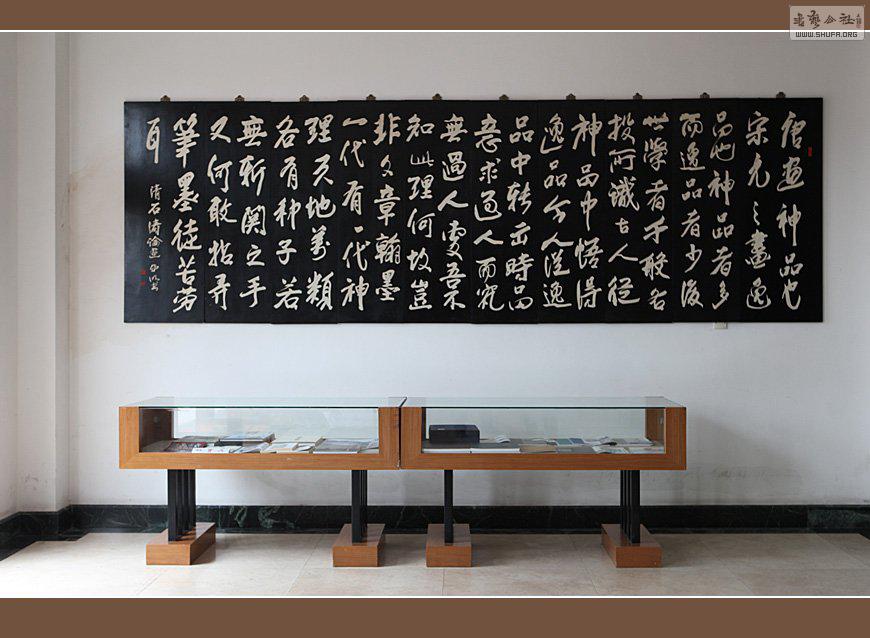 唐畫神品也
宋元之畫逸
品也神品者多
而逸品者少後
世學者千般各
投所識古人從
神品中悟得
逸品今人從逸
品中转出時品
意求過人而究
無過人處吾不
知此理何故豈
非文章翰墨
一代有一代神
理天地萬類
各有种子若
無斬関之手
又何敢拈弄
筆墨徒苦勞
耳
清石濤論畫
書藝公社
WWW.SHUFA.ORG